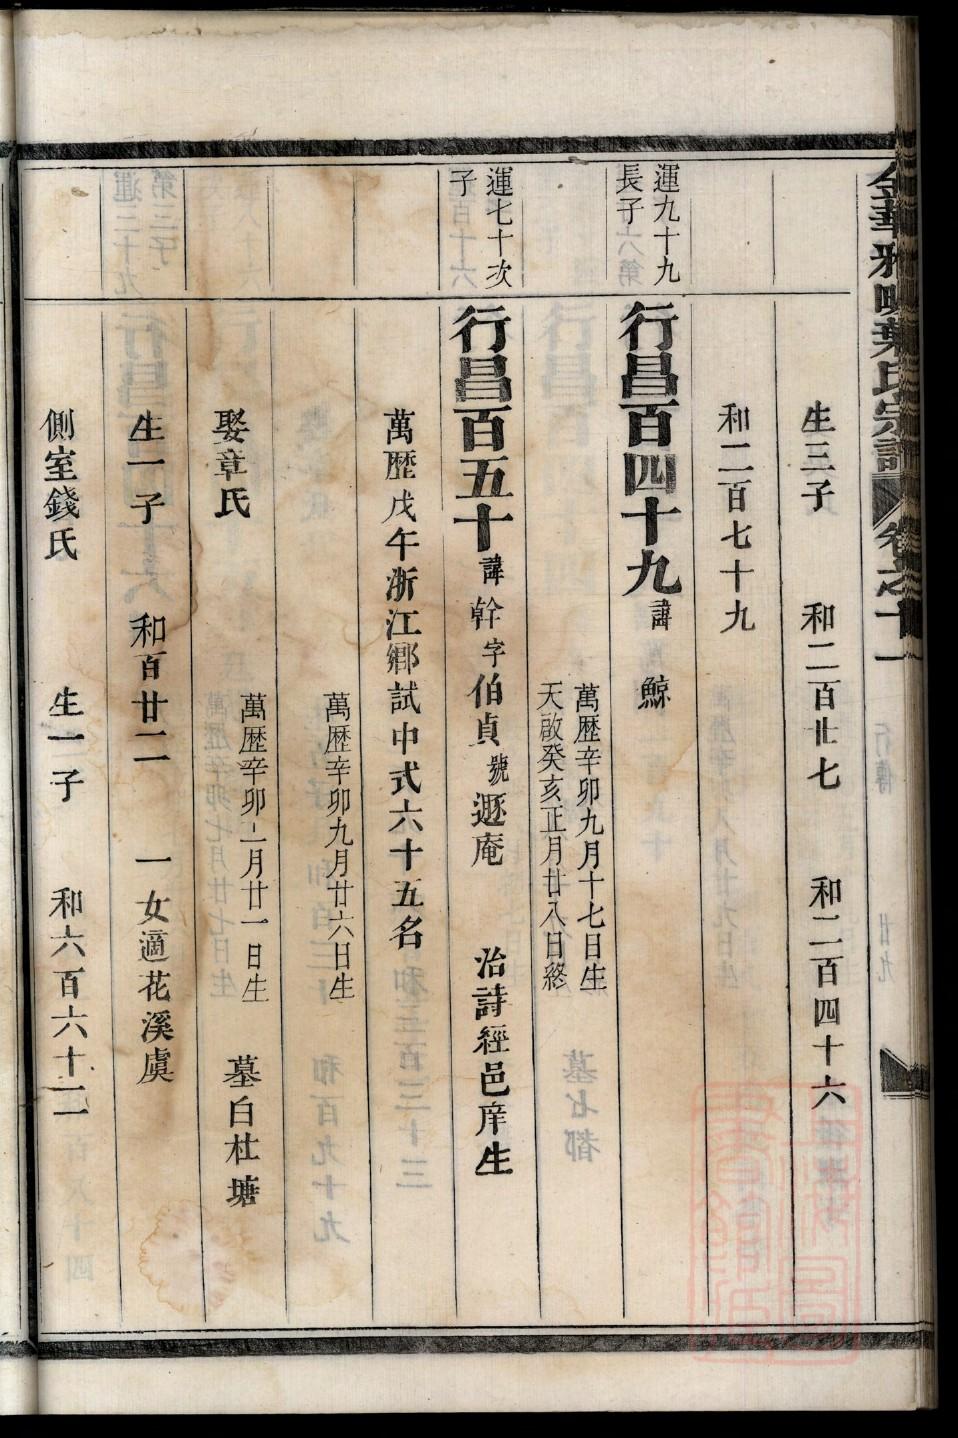 金華雅畈葉氏宗譜 卷之十一
行傳 廿九
生三子 和二百廿七 和二百四十六
和二百七十九
運九十九
長子
行昌百四十九 諱鯨
萬歷辛卯九月十七日生
天啟癸亥正月廿八日終
運七十次
子
行昌百五十 諱幹 字伯貞 號遯庵 治詩經邑庠生
萬歷戊午浙江鄉試中式六十五名
萬歷辛卯九月廿六日生
娶章氏 萬歷辛卯二月廿一日生 墓白杜塘
生一子 和百廿二 一女適花溪虞
側室錢氏 生一子 和六百六十二